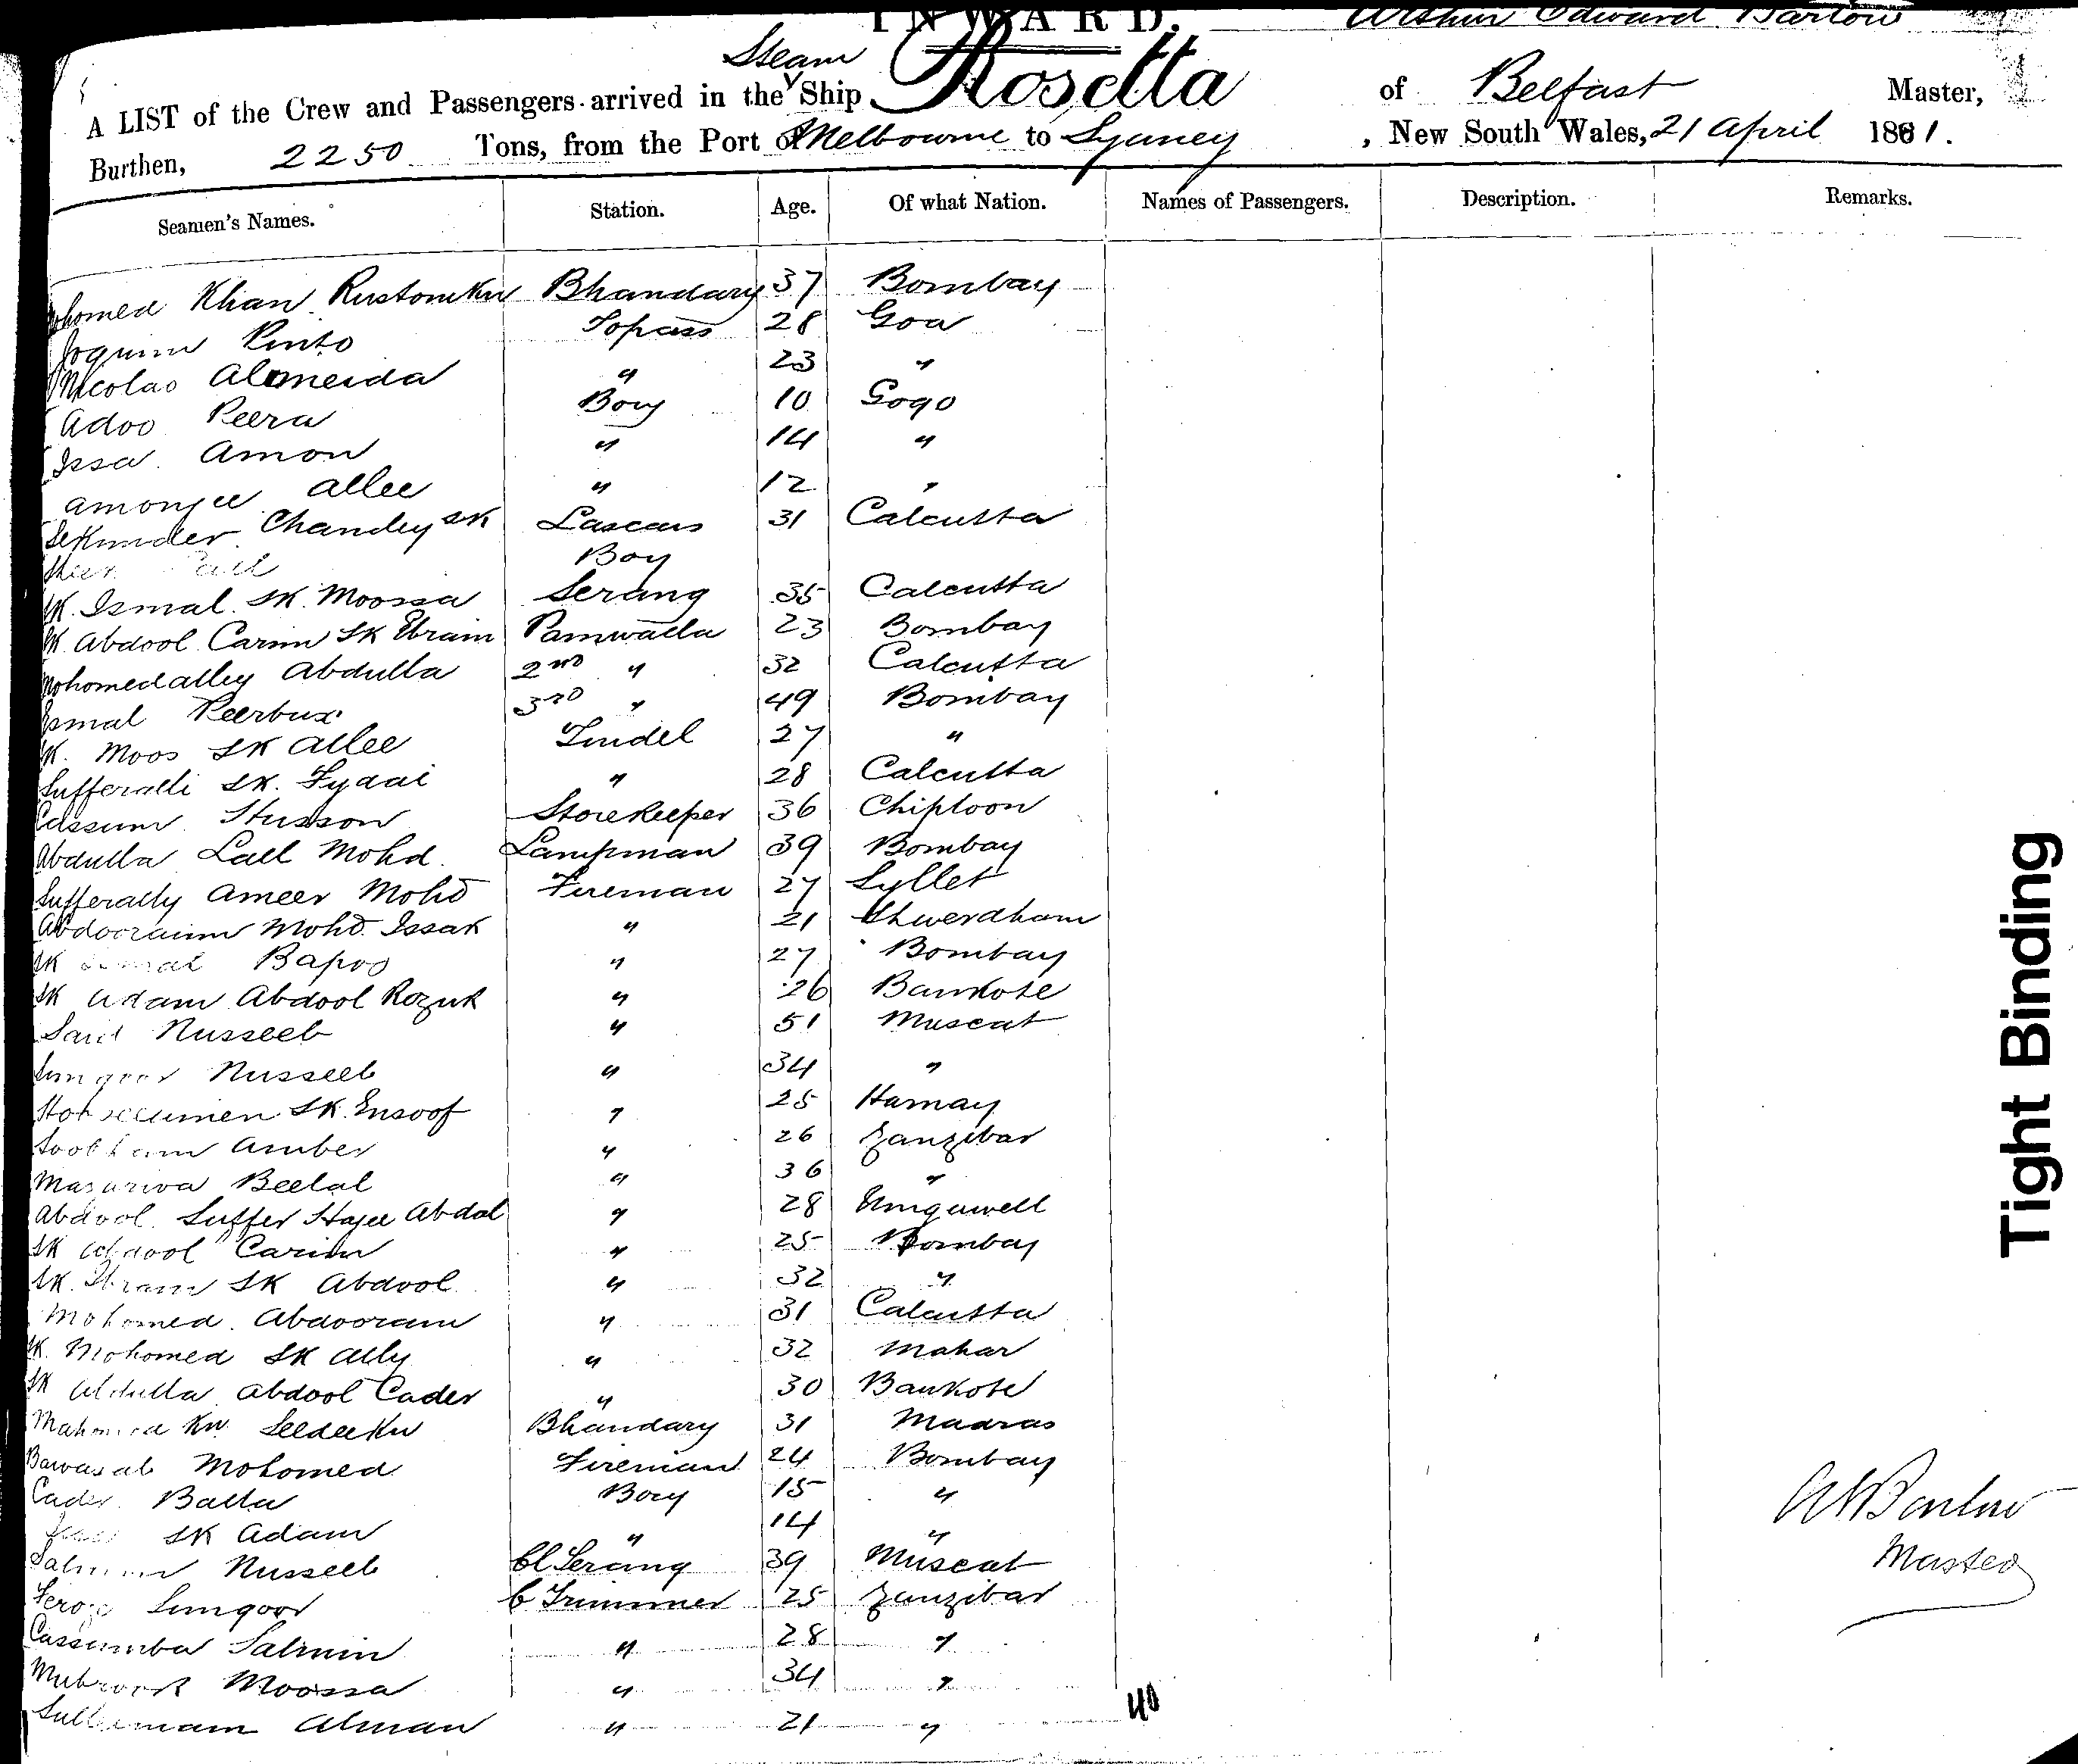 INWARD. Arthur Edward Barlow
Steam
A LIST of the Crew and Passengers arrived in the Ship Rosetta of Belfast Master,
Burthen, 2250 Tons, from the Port of Melbourne to Sydney, New South Wales, 21 April 1881.
Seamen's Names. Station. Age. Of what Nation. Names of Passengers. Description. Remarks.
Khan Rustomku Bhandary 37 Bombay
Joquim Pinto Topass 28 Goa
Nicolao Alomeida " 23 "
Adoo Peera Boy 10 Gogo
Issa Amon " 14 "
Amonjee Allee " 12 "
Sekunder Chandey SK Lascars 31 Calcutta
Boy
SK. Ismal SK. Moossa Serang 35 Calcutta
SK Abdool Carim SK Ebraim Panwalla 23 Bombay
Mohomedalley Abdulla 2nd " 32 Calcutta
Esmal Peerbux 3rd " 49 Bombay
SK. Moos SK Allee Tindel 27 "
Sufferalli SK. Fydai " 28 Calcutta
Cassum Husson Storekeeper 36 Chiploon
Abdulla Lall Mohd. Lampman 39 Bombay
Sufferally Ameer Mohd Fireman 27 Syllet
Abdooraim Mohd. Issak " 21
SK Bapoo " 27 Bombay
SK Adam Abdool Rozuk " 26 Bankote
Said Nusseeb " 51 Muscat
Nusseeb " 34 "
SK. Ensoof " 25 Harnay
Amber " 26 Zanzibar
Beelal " 36 "
Abdool Suffer Hajee Abdol " 28
SK Abdool Carim " 25 Bombay
SK. Ebram SK Abdool " 32 "
Mohomed Abdooram " 31 Calcutta
SK. Mohomed SK Ally " 32 Mahar
SK Abdulla Abdool Cader " 30 Bankote
Mahomed Kn Seedeekn Bhandary 31 Madras
Bawasab Mohomed Fireman 24 Bombay
Cader Balla Boy 15 "
SK Adam " 14 "
Nusseeb Cl Serang 39 Muscat
Feroz Sungoor C Trimmer 25 Zanzibar
Cassumba Salmin " 28 "
Mubrook Moossa " 34 "
Alman " 21 "
40
AEBarlow
Master
Tight Binding